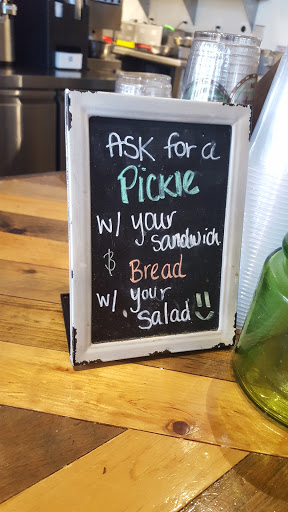 ASK for a
Pickle
w/ your
sandwich
& Bread
w/ your
salad